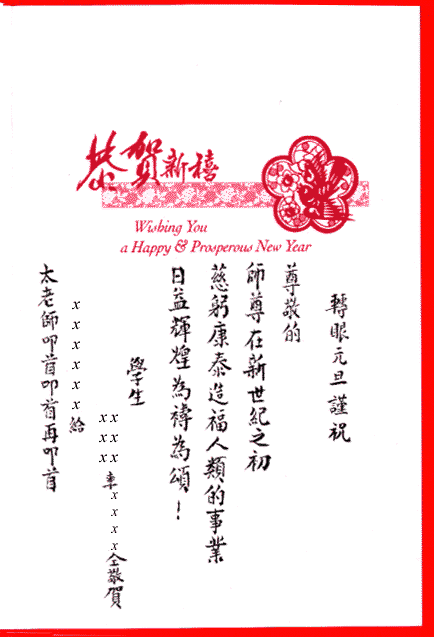 恭賀新禧
Wishing You
a Happy & Prosperous New Year
轉眼元旦謹祝
尊敬的
師尊在新世紀之初
慈躬康泰造福人類的事業
日益輝煌為禱為頌！
學生
xxx
xxx
xxx
車xxxx仝敬賀
xxxxxx給
太老師叩首叩首再叩首